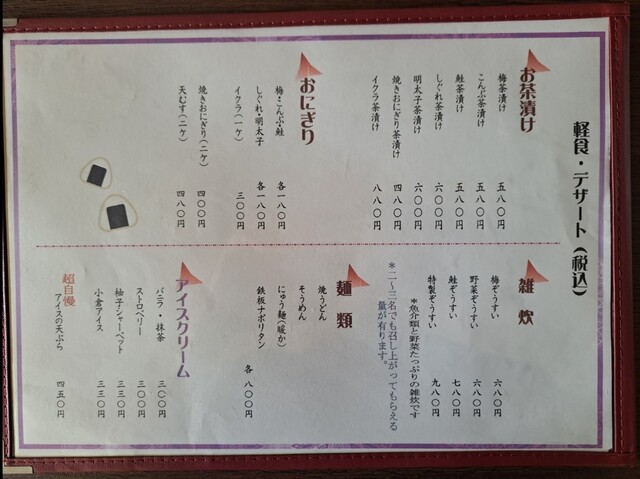 軽食・デザート(税込)
お茶漬け
梅茶漬け 五八〇円
こんぶ茶漬け 五八〇円
鮭茶漬け 五八〇円
しぐれ茶漬け 六〇〇円
明太子茶漬け 六〇〇円
焼きおにぎり茶漬け 四八〇円
イクラ茶漬け 八八〇円
おにぎり
梅・こんぶ・鮭 各一八〇円
しぐれ・明太子 各一八〇円
イクラ(一ケ) 三〇〇円
焼きおにぎり(二ケ) 四〇〇円
天むす(二ケ) 四八〇円
雑炊
梅ぞうすい 六八〇円
野菜ぞうすい 六八〇円
鮭ぞうすい 七八〇円
特製ぞうすい 九八〇円
*魚介類と野菜たっぷりの雑炊です
*二〜三名でも召し上がってもらえる
量が有ります。
麺類
焼うどん
そうめん
にゅう麺(暖か)
鉄板ナポリタン
各 八〇〇円
アイスクリーム
バニラ・抹茶 三〇〇円
ストロベリー 三〇〇円
柚子シャーベット 三三〇円
小倉アイス 三三〇円
超自慢
アイスの天ぷら 四五〇円